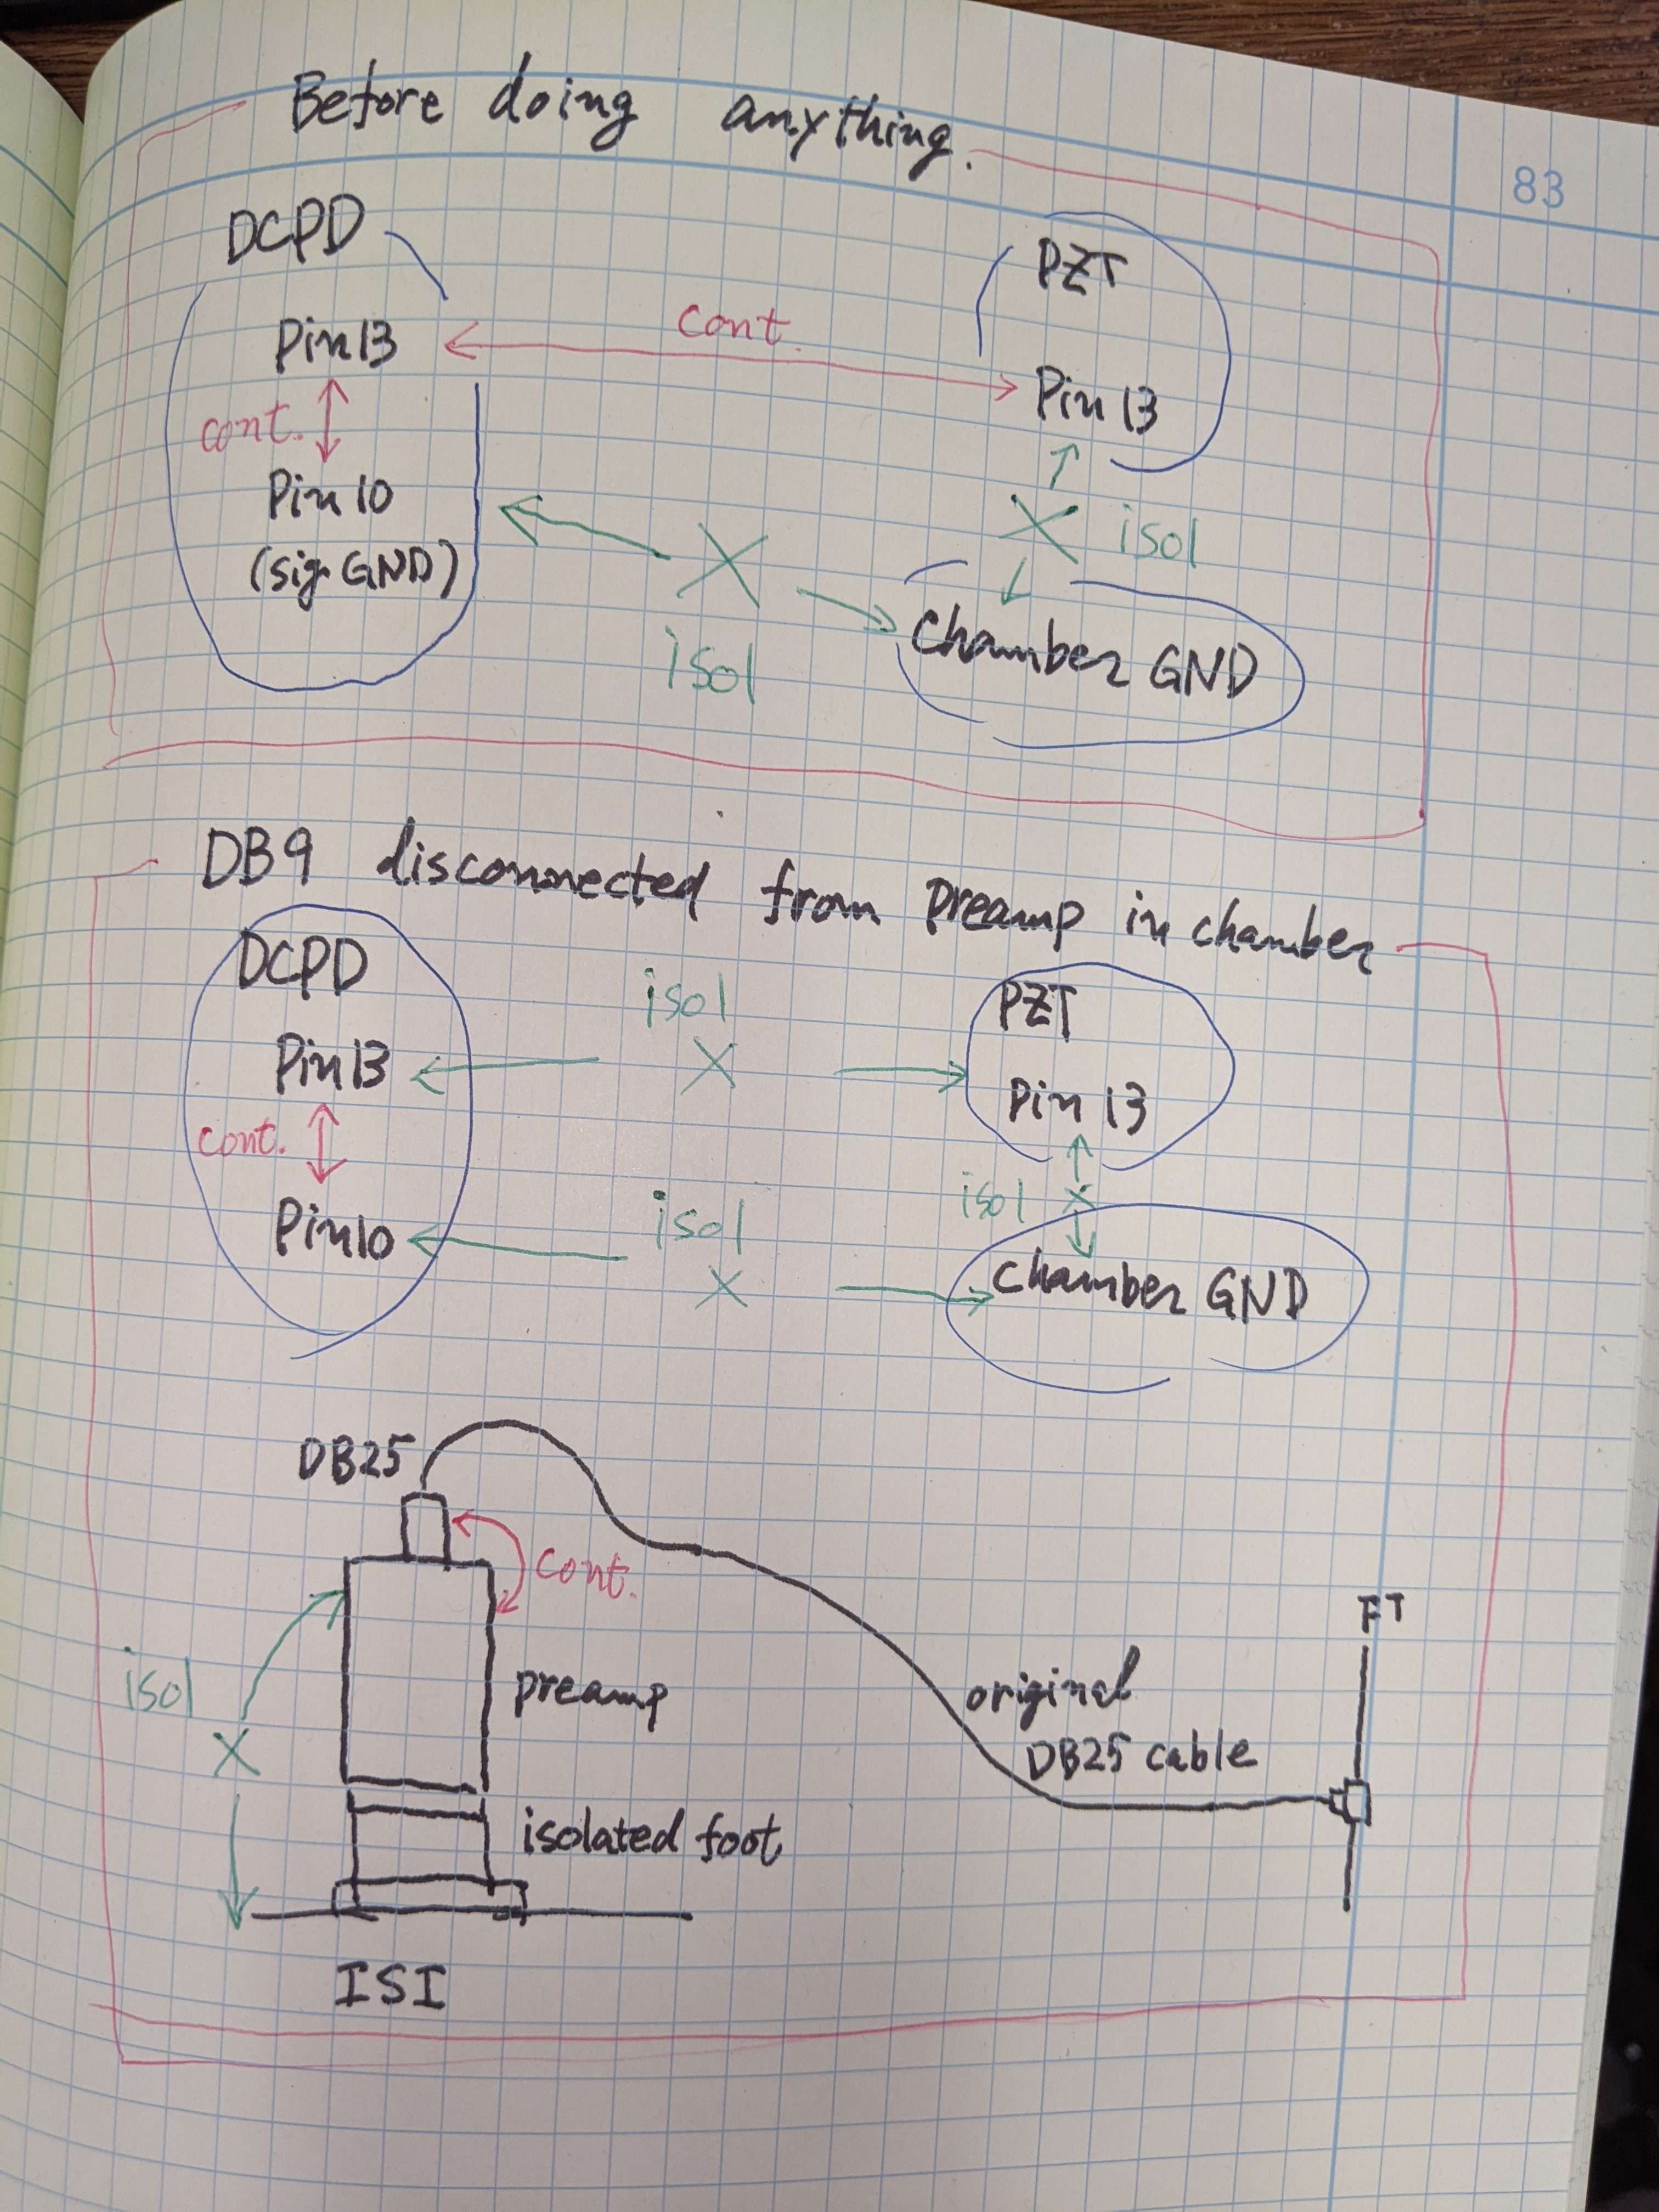 Before doing anything.
83
DCPD
PZT
Pin 13
cont.
Pin 13
cont.
Pin 10
(sig. GND)
isol
isol
chamber GND
DB9 disconnected from preamp in chamber
DCPD
isol
PZT
Pin 13
Pin 13
cont.
isol
Pin 10
isol
chamber GND
DB25
cont.
FT
isol
preamp
original
DB25 cable
isolated foot
ISI